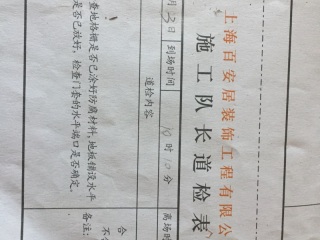 上海百安居装饰工程有限公
施工队长道检表
月13日 到场时间 10时10分 离场时
道检内容
合
不
查地格栅是否已涂好防腐材料,地板铺设水平
是否已放好,检查门套的水平端口是否确定。
备注: